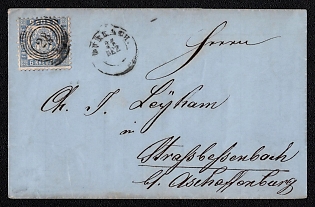 DURLACH
24
DEZ
Herrn
Ch. J. Leyham
in
Strassbessenbach
b/ Aschaffenburg